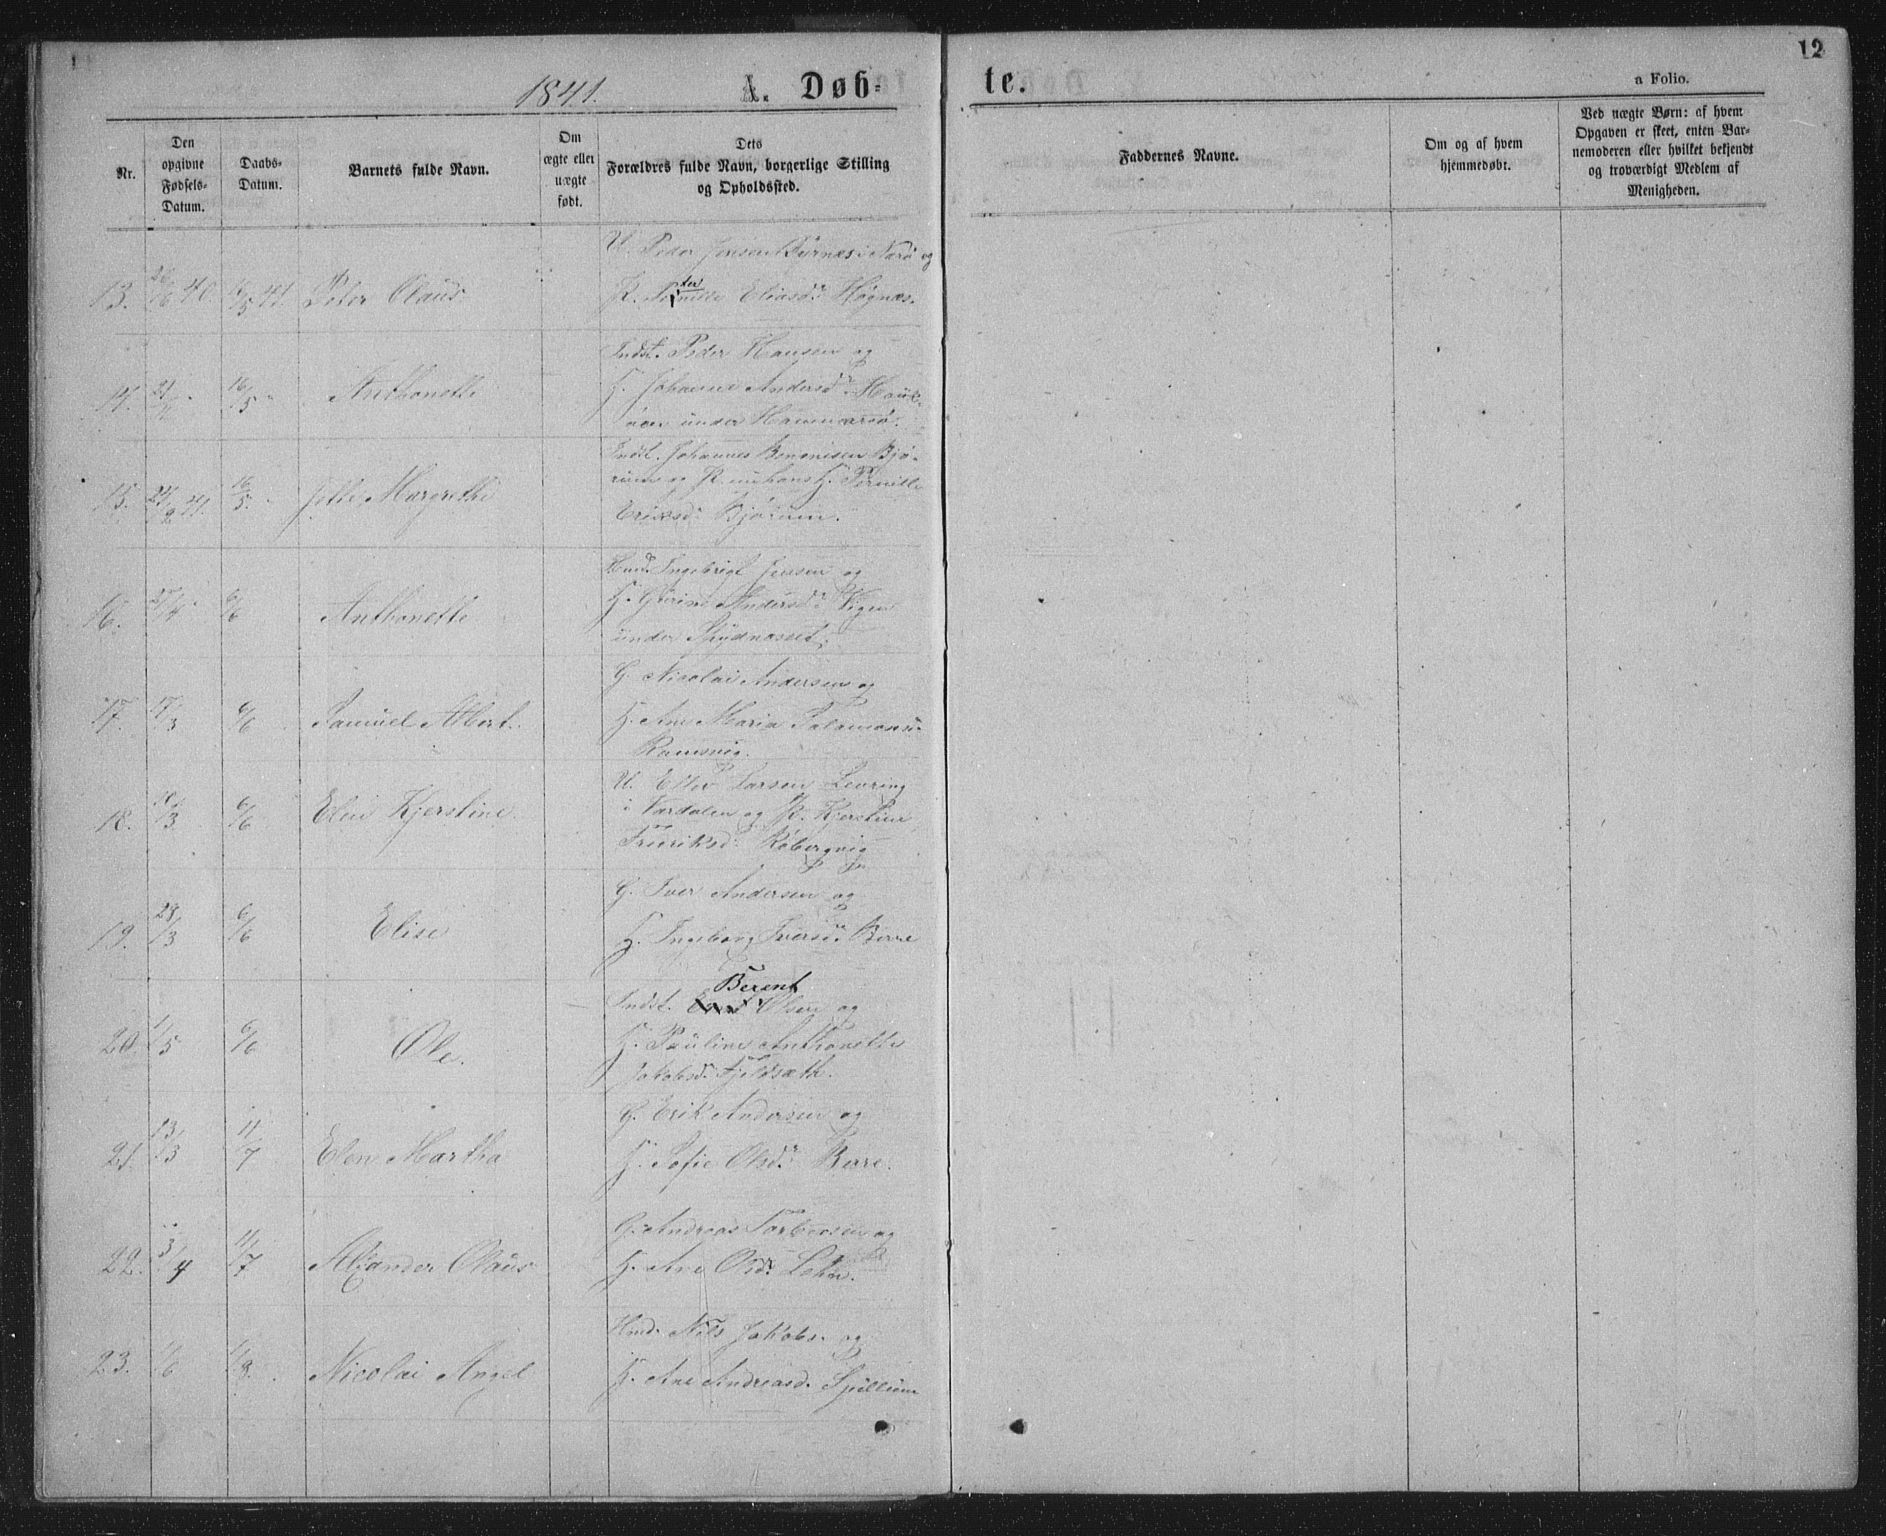 12
1841. A. Døb-
te.
a Folio.
Nr.
Den
opgivne
Fødsels-
Datum.
Daabs-
Datum.
Barnets fulde Navn.
Om
ægte eller
uægte
født.
Dets
Forældres fulde Navn, borgerlige Stilling
og Opholdssted.
Faddernes Navne.
Om og af hvem
hjemmedøbt.
Ved uægte Børn: af hvem
Opgaven er skeet, enten Bar-
nemoderen eller hvilket bekjendt
og troværdigt Medlem af
Menigheden.
13. 16/5 41. Peter Olaus
U. Peder Jensen i Nærø og
P. Eliasd. Høgnæs.
14. 16/5 Anthonette
Indst. Peder Hansen og
H. Johanna Andersd.
under Hammersø.
15. 41. 16/5 Margrethe
Indst. Johannes Bjø-
rum og P. H. Pernille
Eriksd. Bjørum.
16. 6/6 Anthonette
Ingebrigt Jensen og
H. Andersd. Vigen
under Spydnæsset.
17. 17/3 6/6 Samuel Albert.
G. Nicolai Andersen og
H. Ane Maria Salamons
Ramsvig.
18. 6/6 Elen Kjerstine
U. Larsen Levring
i Værdalen og P. Kjerstine
Fredriksd. Kobergvig
19. 28/3 6/6 Elise
G. Iver Andersen og
H. Ingeborg Iversd. Berre
20. 1/5 6/6 Ole.
Berent
Indst. Olsen og
H. Pauline Anthonette
Jakobsd. Fjeldsæth.
21. 13/3 11/7 Elen Martha
G. Erik Andersen og
H. Sofie Olsd. Berre.
22. 3/4 11/7 Alexander Olaus
G. Andreas Torbersen og
H. Ane Olsd. Lehn.
23. 1/6 1/8. Nicolai Angel
Nils Jakobs. og
H. Ane Andreasd. Spillum